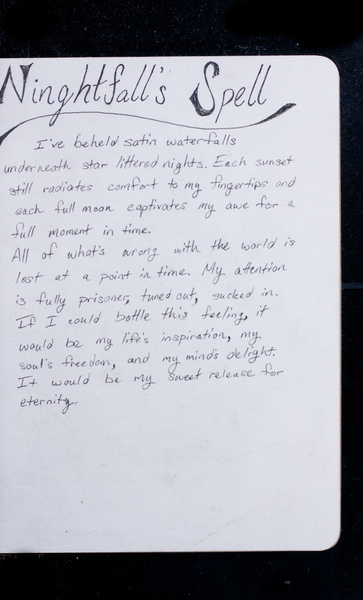 Ninghtfall's Spell
I've beheld satin waterfalls
underneath star littered nights. Each sunset
still radiates comfort to my fingertips and
each full moon captivates my awe for a
full moment in time.
All of what's wrong with the world is
lost at a point in time. My attention
is fully prisoner, tuned out, sucked in.
If I could bottle this feeling, it
would be my life's inspiration, my
soul's freedom, and my mind's delight.
It would be my sweet release for
eternity.